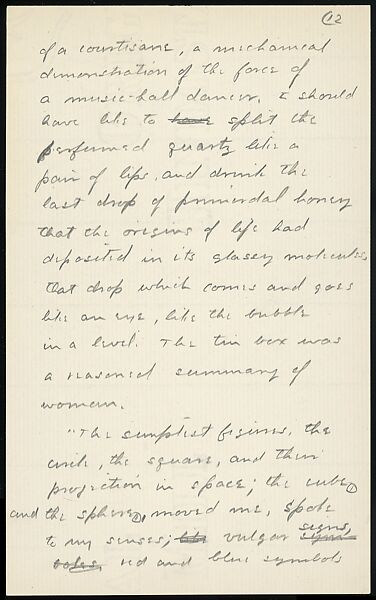 12
of a courtisane, a mechanical
demonstration of the force of
a music-hall dancer. I should
have like to have split the
perfumed quartz like a
pair of lips, and drunk the
last drop of primordial honey
that the origins of life had
deposited in its glassy molecules,
that drop which comes and goes
like an eye, like the bubble
in a level. The tin box was
a reasoned summary of
woman.
"The simplest figures, the
circle, the square, and their
projection in space; the cube
and the sphere, moved me, spoke
to my senses; like vulgar signs,
red and blue symbols